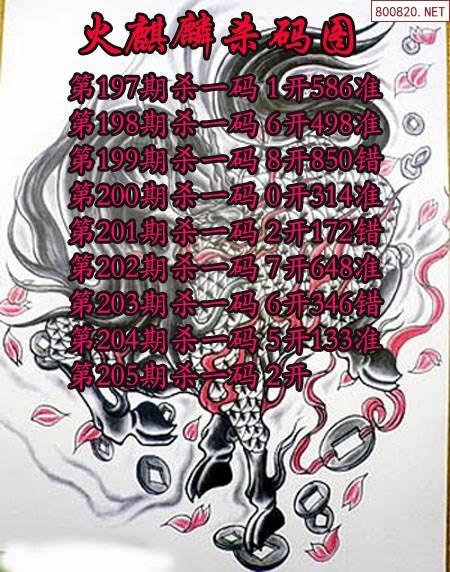 800820.NET
火麒麟杀码图
第197期杀一码 1开586准
第198期杀一码 6开498准
第199期杀一码 8开850错
第200期杀一码 0开314准
第201期杀一码 2开172错
第202期杀一码 7开648准
第203期杀一码 6开346错
第204期杀一码 5开133准
第205期杀一码 2开